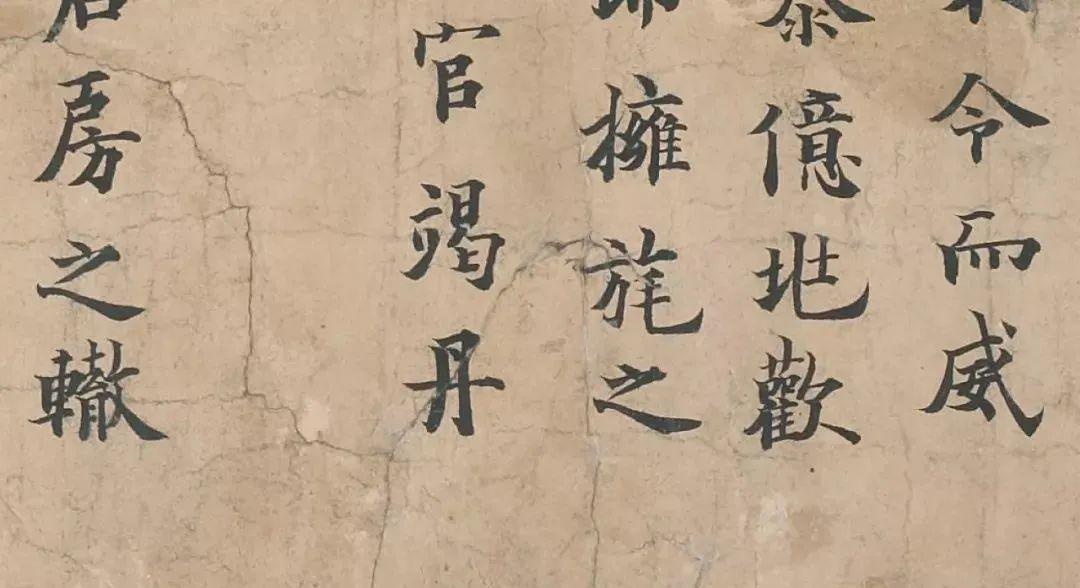 令而威
億地歡
擁旄之
官竭丹
房之轍